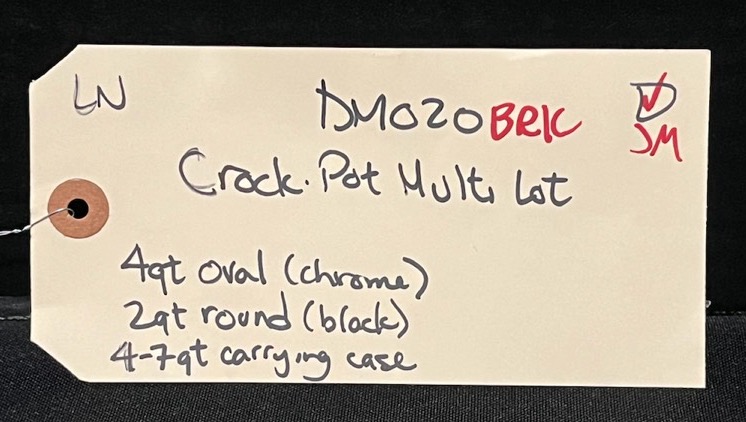 LN
DM020BRIC
JM
Crock-Pot Multi Lot
4qt oval (chrome)
2qt round (black)
4-7qt carrying case